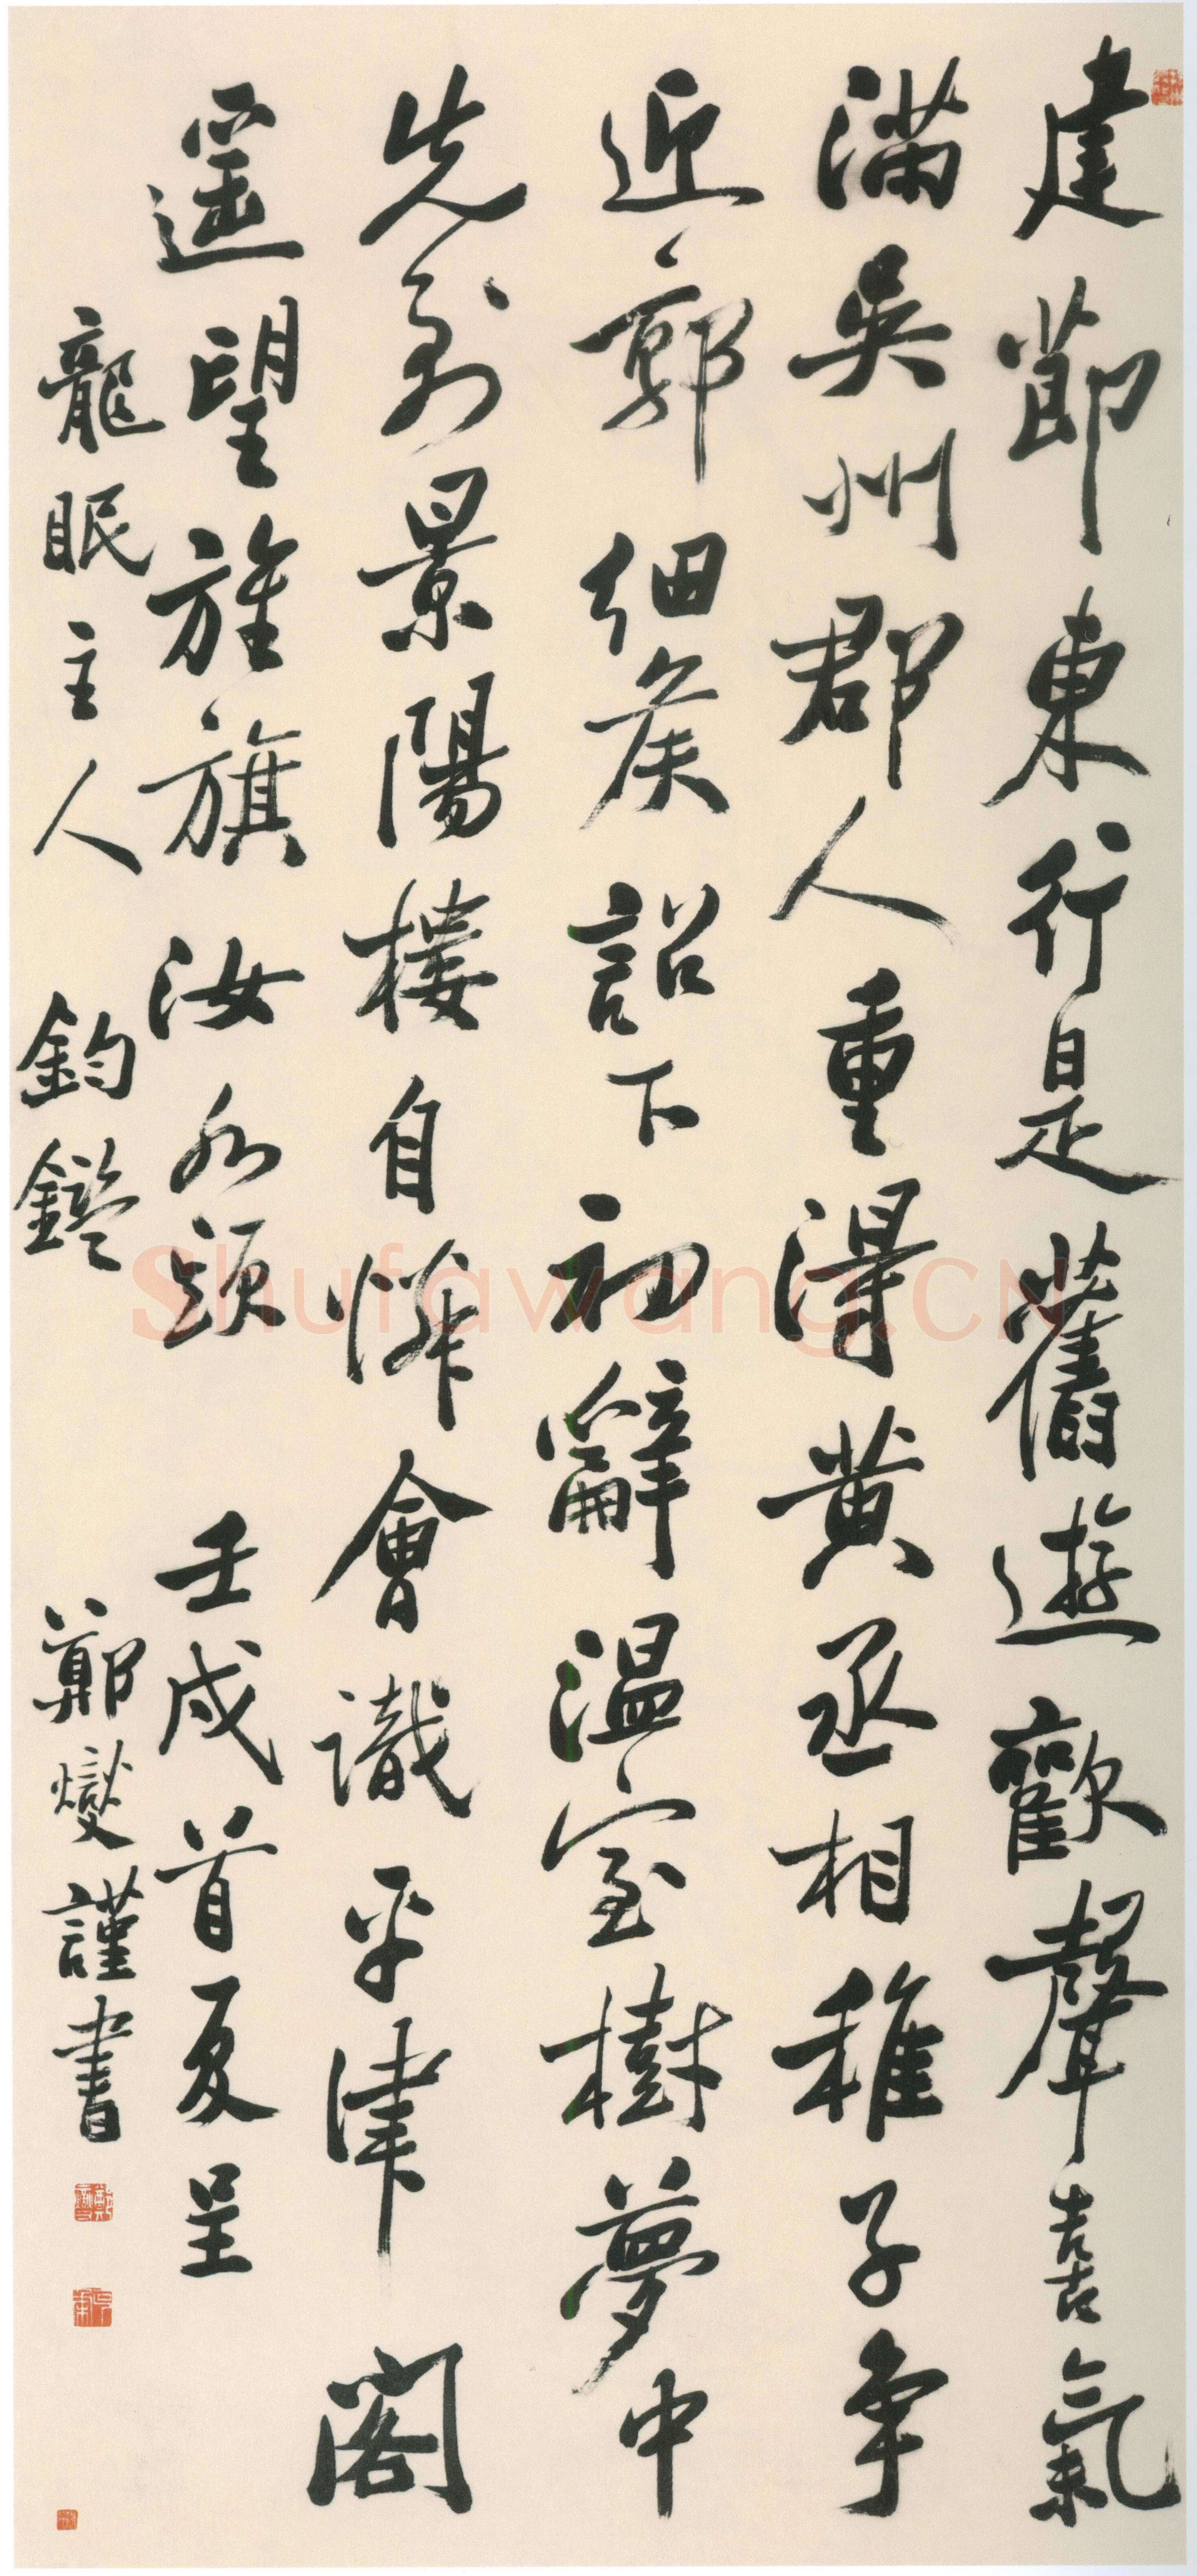 建節東行是舊遊歡聲喜氣
滿吳州郡人重得黃丞相稚子爭
近郭細侯詔下初辭溫室樹夢中
先到景陽樓自憐曾識平津閣
遙望旌旗汝水頭 壬戌首夏呈
龍眠主人 鈞鑑 鄭燮謹書
Shufawang.CN